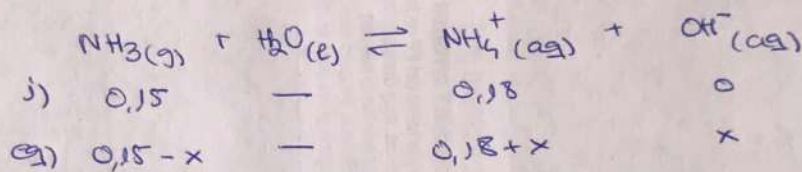 NH3(g) + H2O(l) ⇌ NH4+ (aq) + OH- (aq)
i) 0,15 — 0,18 0
eq) 0,15-x — 0,18+x x